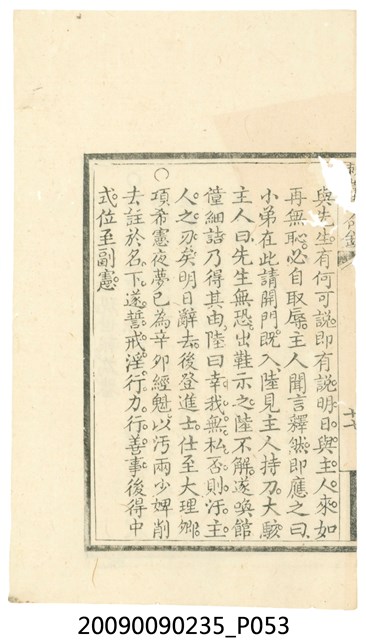 與先生有何可說即有說明日與主人來如
再無恥必自取辱主人聞言釋然即應之曰
小弟在此請開門既入陸見主人持刀大駭
主人曰先生無恐出鞋示之陸不解遂喚館
僮細詰乃得其由陸曰幸我無私否則汙主
人之刃矣明日辭去後登進士仕至大理卿
○項希憲夜夢己為辛卯經魁以汚兩少婢削
去註於名下遂誓戒淫行力行善事後得中
式位至副憲
十七
20090090235_P053